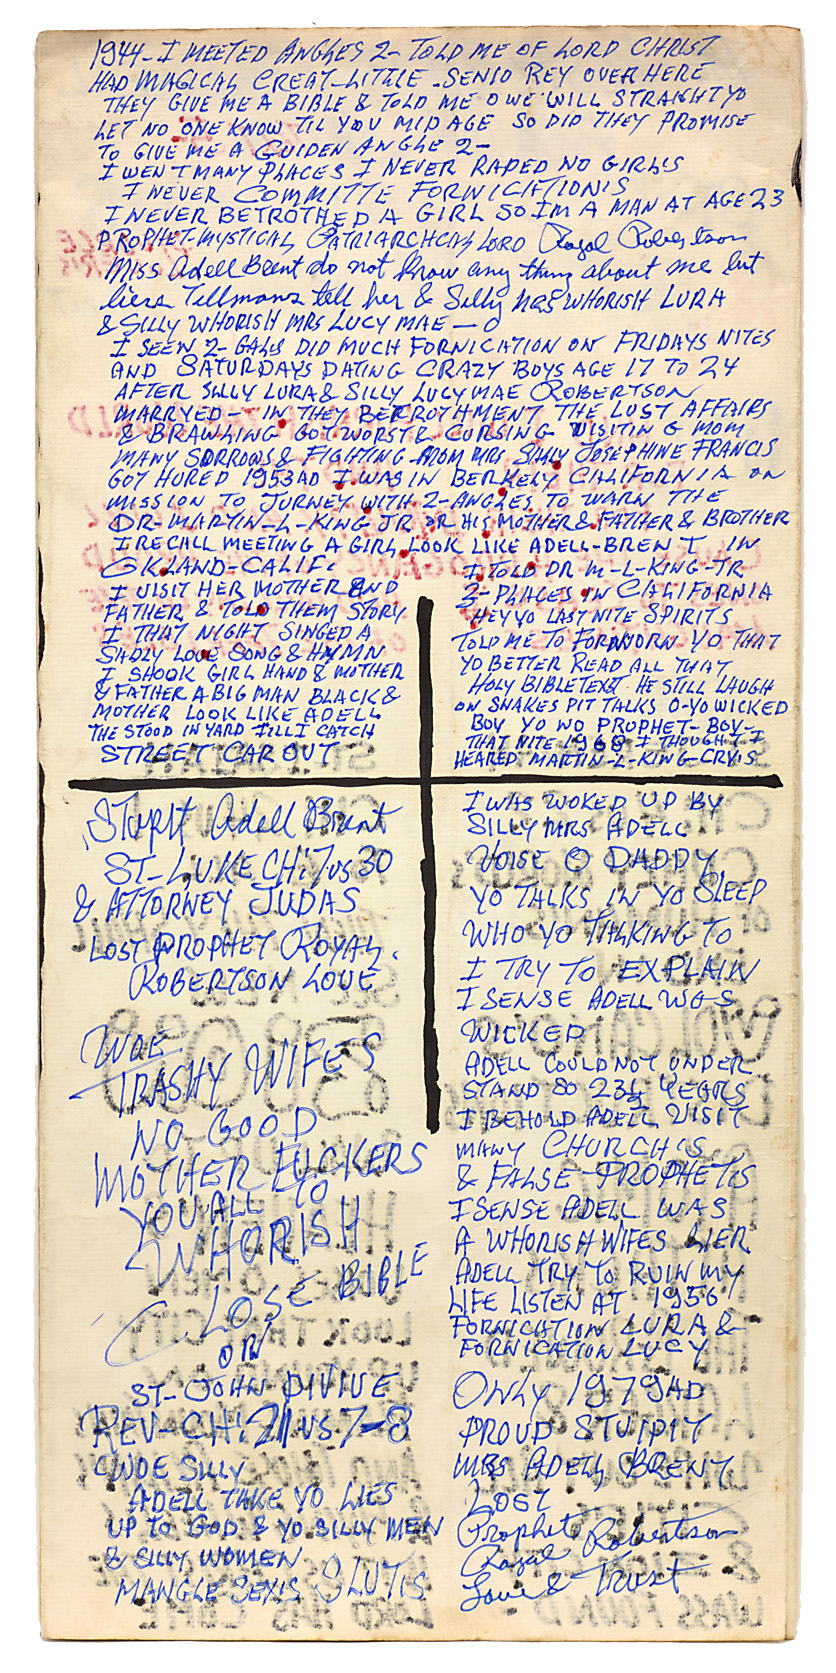 1944-I MEETED ANGLES 2- TOLD ME OF LORD CHRIST
HAD MAGICAL CREAT-LITTLE-SENIO REY OVER HERE
THEY GIVE ME A BIBLE & TOLD ME O WE WILL STRAIGHT YO
LET NO ONE KNOW TIL YOU MID AGE SO DID THEY PROMISE
TO GIVE ME A GUIDEN ANGLE 2-
I WENT MANY PLACES I NEVER RAPED NO GIRLS
I NEVER COMMITTE FORNICATIONS
I NEVER BETROTHED A GIRL SO IM A MAN AT AGE 23
PROPHET-MYSTICAL PATRIARCHCAL LORD Royal Robertson
Miss Adell Brent do not know any thing about me but
liers Tillmans tell her & Silly has WHORISH LURA
& SILLY WHORISH MRS LUCY MAE -O
I SEEN 2-GALS DID MUCH FORNICATION ON FRIDAYS NITES
AND SATURDAYS DATING CRAZY BOYS AGE 17 TO 24
AFTER SILLY LURA & SILLY LUCY MAE ROBERTSON
MARRYED- IN THEY BERROTHMENT THE LUST AFFAIRS
& BRAWLING GOT WORST & CURSING VISITING MOM
MANY SORROWS & FIGHTING-MOM MRS SILLY JOSEPHINE FRANCIS
GOT HURED 1953AD I WAS IN BERKELY CALIFORNIA ON
MISSION TO JURNEY WITH 2-ANGLES TO WARN THE
DR-MARTIN-L-KING JR OR HIS MOTHER & FATHER & BROTHER
I RECALL MEETING A GIRL LOOK LIKE ADELL-BRENT IN
OKLAND-CALIF.
I VISIT HER MOTHER AND
FATHER & TOLD THEM STORY
I THAT NIGHT SINGED A
SADLY LOVE SONG & HYMN
I SHOOK GIRL HAND & MOTHER
& FATHER A BIG MAN BLACK &
MOTHER LOOK LIKE ADELL
THE STOOD IN YARD TILL I CATCH
STREET CAR OUT
I TOLD DR M-L-KING-JR
3-PLACES IN CALIFORNIA
HEY YO LAST NITE SPIRITS
TOLD ME TO FORWORN YO THAT
YO BETTER READ ALL THAT
HOLY BIBLE TEXT HE STILL LAUGH
ON SNAKES PIT TALKS O-YO WICKED
BOY YO NO PROPHET-BOY-
THAT NITE 1968 I THOUGHT I
HEARED MARTIN-L-KING-CRYIS
Stupit Adell Brent
ST-LUKE CH:7 VS 30
& ATTORNEY JUDAS
LOST PROPHET ROYAL.
ROBERTSON LOVE
WOE
TRASHY WIFES
NO GOOD
MOTHER FUCKERS
YOU ALL TO
WHORISH
CLOSE BIBLE
ON
ST-JOHN DIVINE
REV-CH:21 VS 7-8
WOE SILLY
ADELL TAKE YO LIES
UP TO GOD & YO SILLY MEN
& SILLY WOMEN
MANGLE SEXIS SLUTIS
I WAS WOKED UP BY
SILLY MRS ADELL
VOISE O DADDY
YO TALKS IN YO SLEEP
WHO YO TALKING TO
I TRY TO EXPLAIN
I SENSE ADELL WAS
WICKED
ADELL COULD NOT UNDER
STAND SO 23½ YEARS
I BEHOLD ADELL VISIT
MANY CHURCHS
& FALSE-PROPHETS
I SENSE ADELL WAS
A WHORISH WIFES LIER
ADELL TRY TO RUIN MY
LIFE LISTEN AT 1956
FORNICATION LURA &
FORNICATION LUCY
ONLY 1979AD
PROUD STUPIT
MRS ADELL BRENT
LOST
Prophet
Royal Robertson
Love & Trust